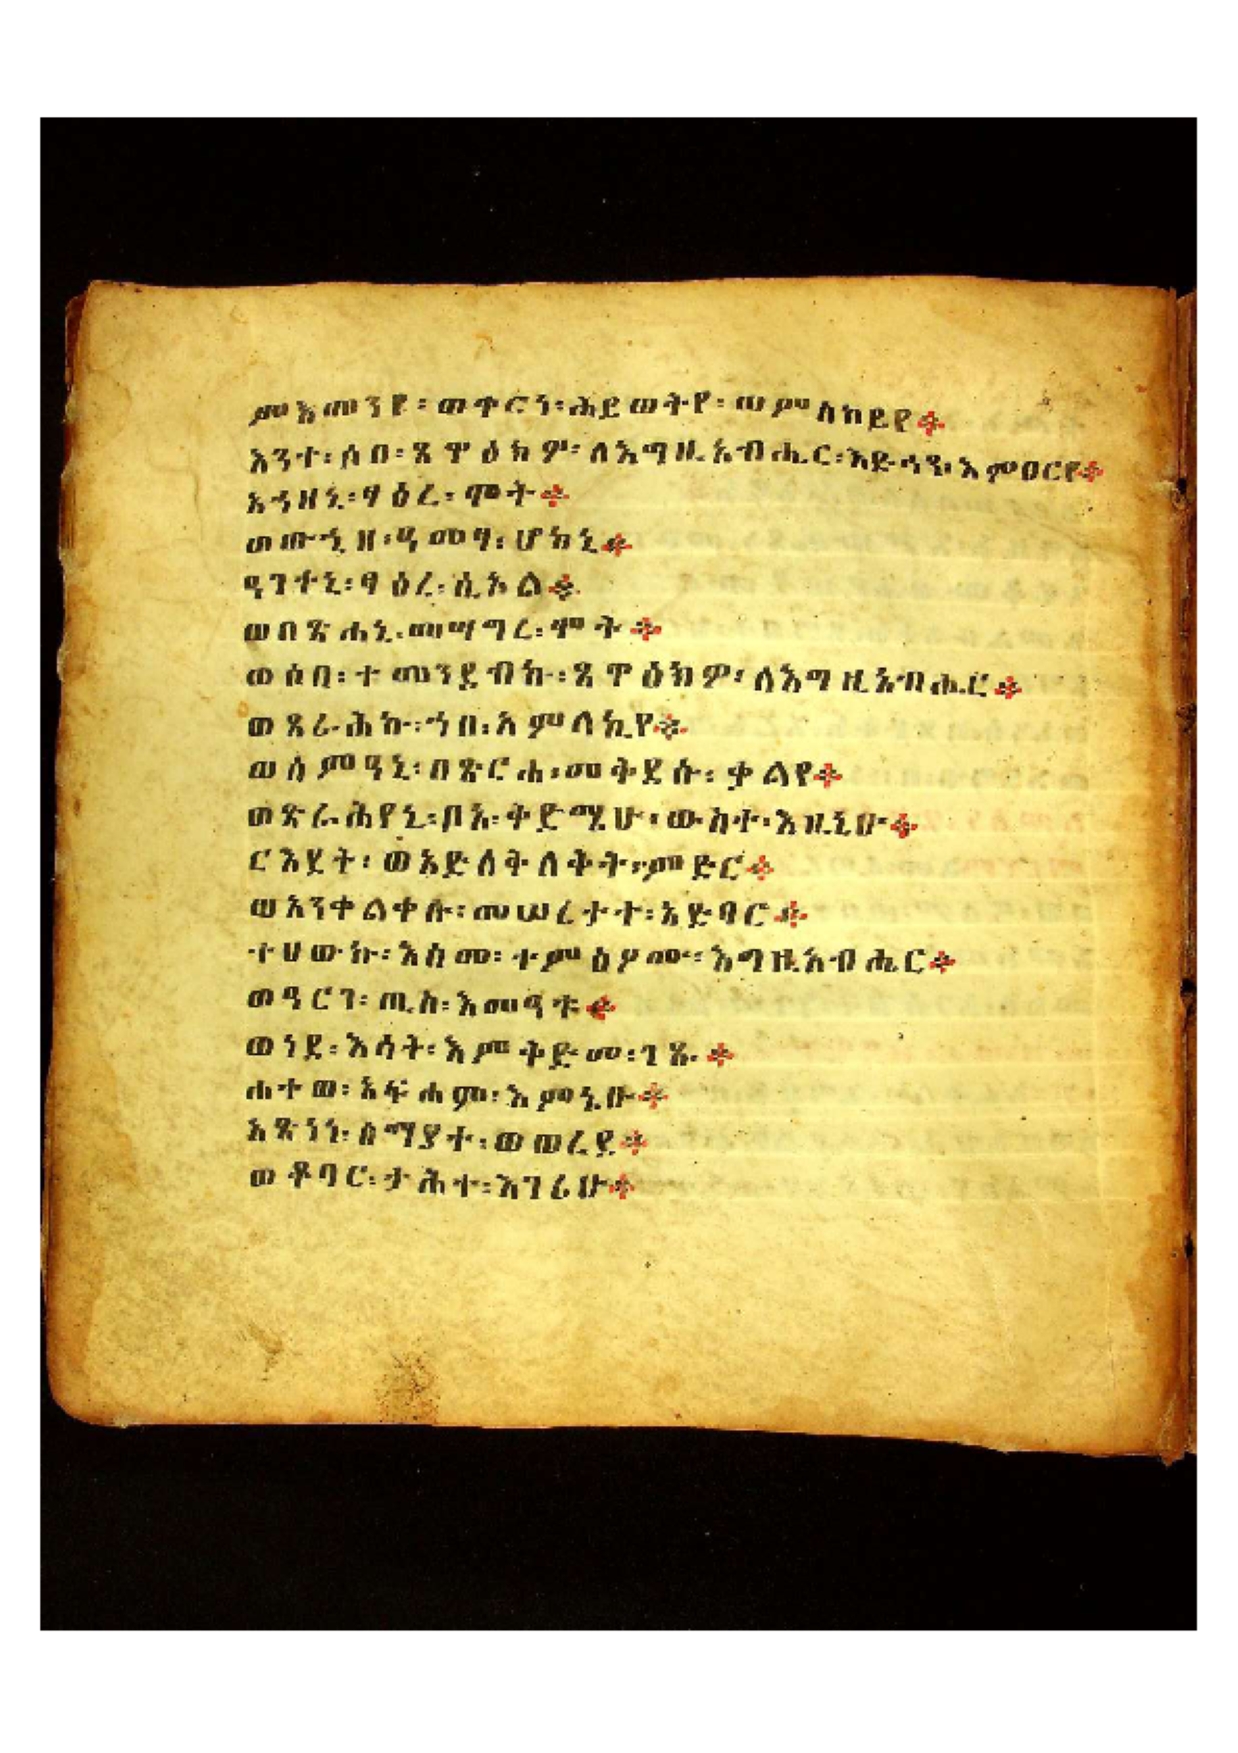 ምእመንየ፡ወቀርነ፡ሕይወትየ፡ወምስካይየ።
እንተ፡ሶበ፡ጸዋዕክዎ፡ለእግዚአብሔር፡እድኅን፡እምፀርየ።
አኀዘኒ፡ፃዕረ፡ሞት።
ወውኂዘ፡ዓመፃ፡ሆከኒ።
ዓገተኒ፡ፃዕረ፡ሲኦል።
ወበጽሐኒ፡መሣግረ፡ሞት።
ወሶበ፡ተመንደብኩ፡ጸዋዕክዎ፡ለእግዚአብሔር።
ወጸራሕኩ፡ኀበ፡አምላኪየ።
ወሰምዓኒ፡በጽርሐ፡መቅደሱ፡ቃልየ።
ወጽራሕየኒ፡በአ፡ቅድሜሁ፡ውስተ፡እዚኒሁ።
ርእደት፡ወአድለቅለቀት፡ምድር።
ወአንቀልቀሉ፡መሠረታተ፡አድባር።
ተሀውኩ፡እስመ፡ተምዕዖሙ፡እግዚአብሔር።
ወዓርገ፡ጢስ፡እመዓቱ።
ወነደ፡እሳት፡እምቅድመ፡ገጹ።
ሐተወ፡አፍሐም፡እምኔሁ።
አጽነነ፡ሰማያተ፡ወወረደ።
ወቆባር፡ታሕተ፡እገሪሁ።